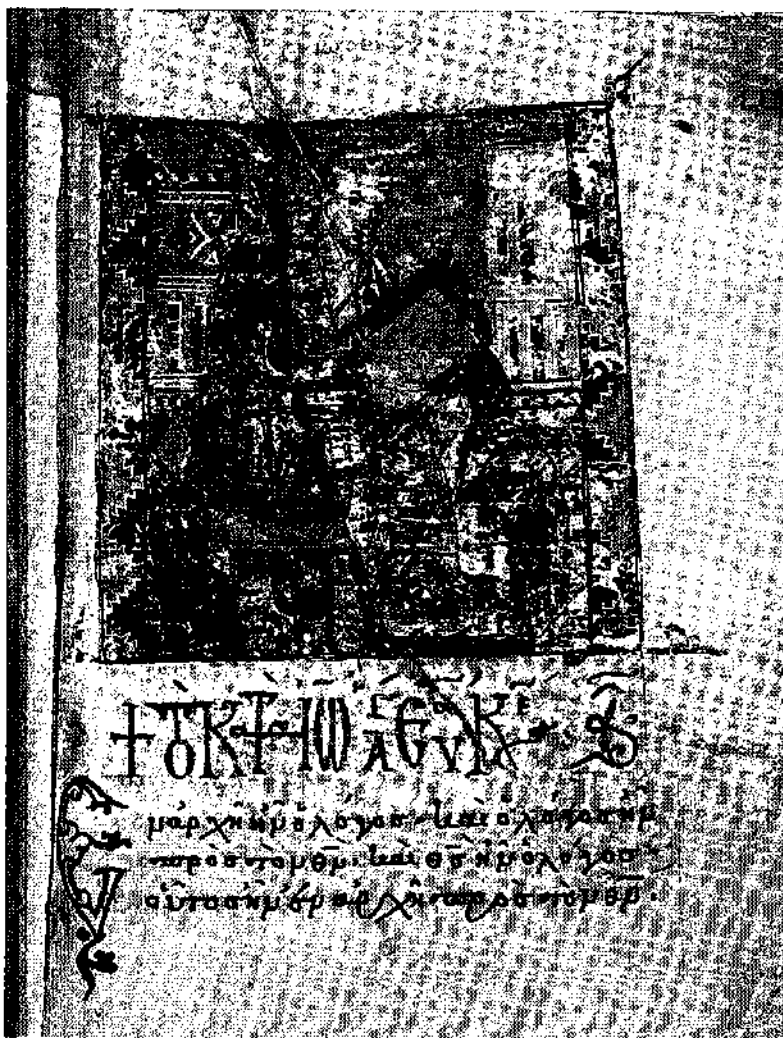 + ΤΟ ΚΑΤΑ ΙΩ
Ἐν ἀρχῆ ἦν ὁ λόγος· καὶ ὁ λόγος ἦν
πρὸς τὸν θν· καὶ θς ἦν ὁ λόγος·
οὗτος ἦν ἐν ἀρχῆ πρὸς τὸν θν·